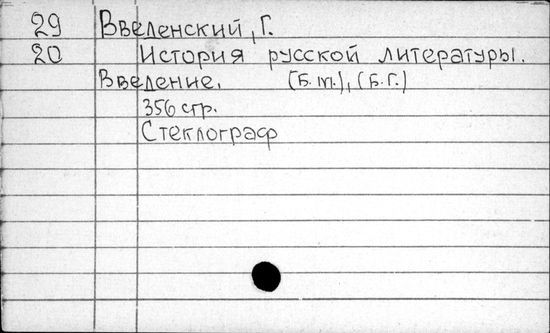 29 Введенский, Г.
20 История русской литературы.
Введение. (Б.м.), (Б.Г.)
356 стр.
Стеклограф